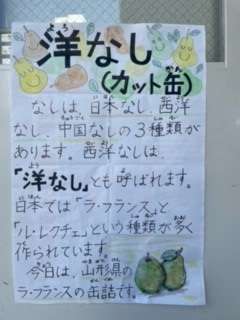 洋なし
(カット缶)
なしは、日本なし、西洋
なし、中国なしの3種類が
あります。西洋なしは、
「洋なし」とも呼ばれます。
日本では「ラ・フランス」と
「ル・レクチェ」という種類が多く
作られています。
今日は、山形県の
ラ・フランスの缶詰です。